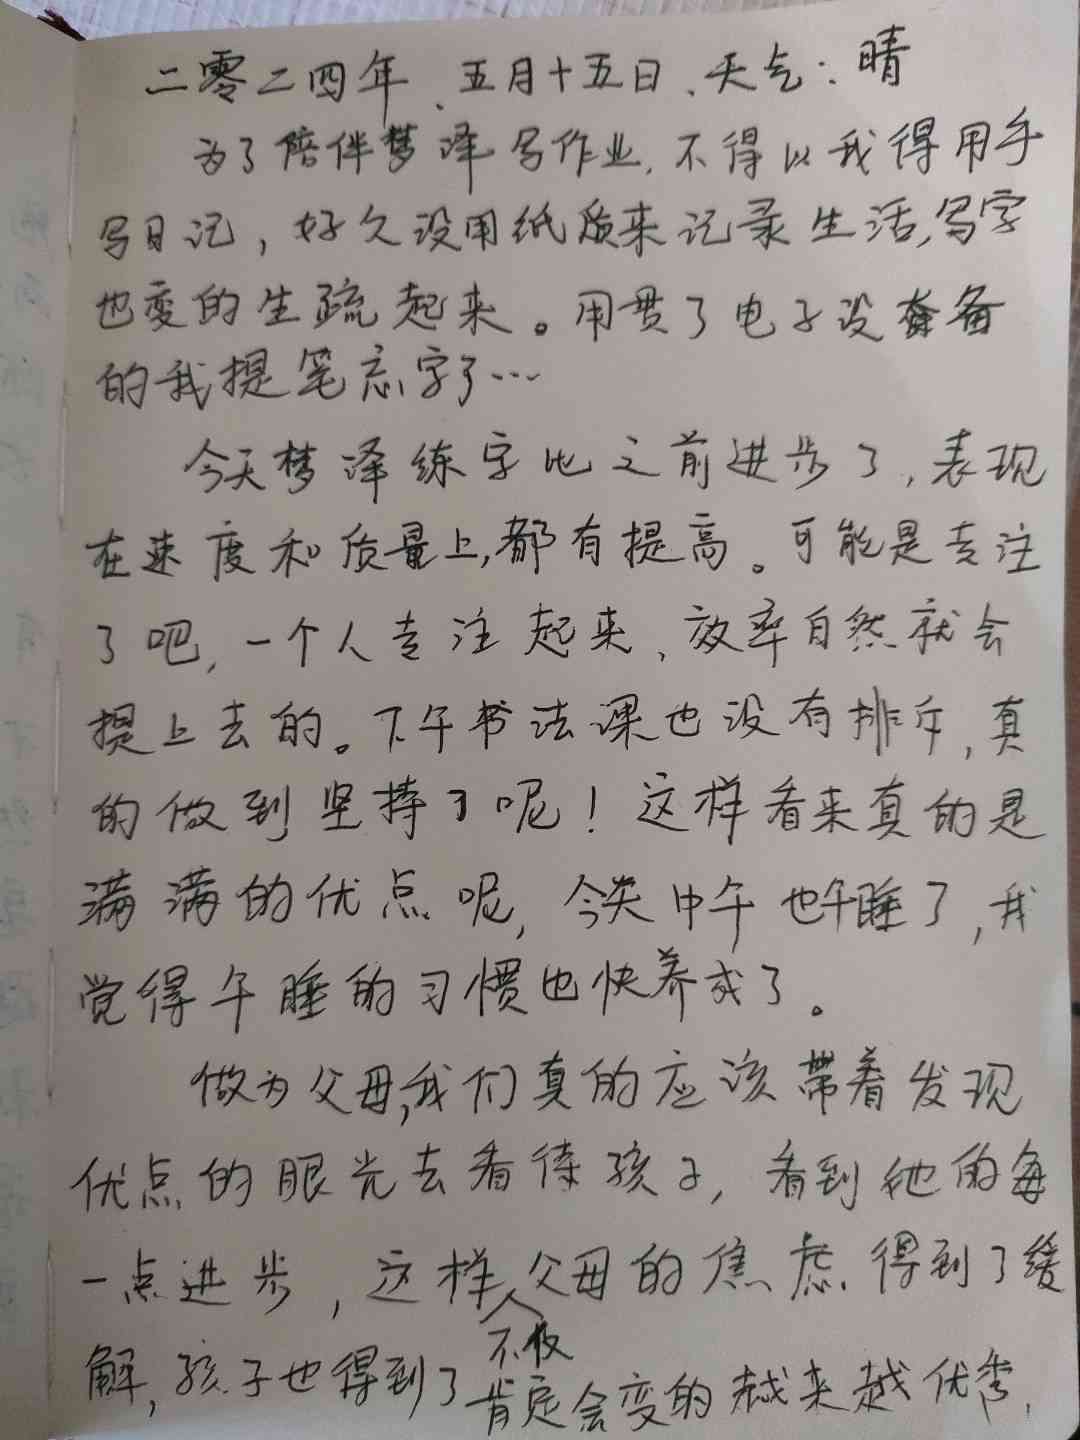 二零二四年、五月十五日、天气：晴
为了陪伴梦泽写作业，不得以我得用手
写日记，好久没用纸质来记录生活，写字
也变的生疏起来。用贯了电子设备
的我提笔忘字了…
今天梦泽练字比之前进步了，表现
在速度和质量上，都有提高。可能是专注
了吧，一个人专注起来、效率自然就会
提上去的。下午书法课也没有排斥，真
的做到坚持了呢！这样看来真的是
满满的优点呢，今天中午也午睡了，我
觉得午睡的习惯也快养成了。
做为父母，我们真的应该带着发现
优点的眼光去看待孩子，看到他的每
一点进步，这样父母的焦虑得到了缓
不仅
解，孩子也得到了肯定会变的越来越优秀，